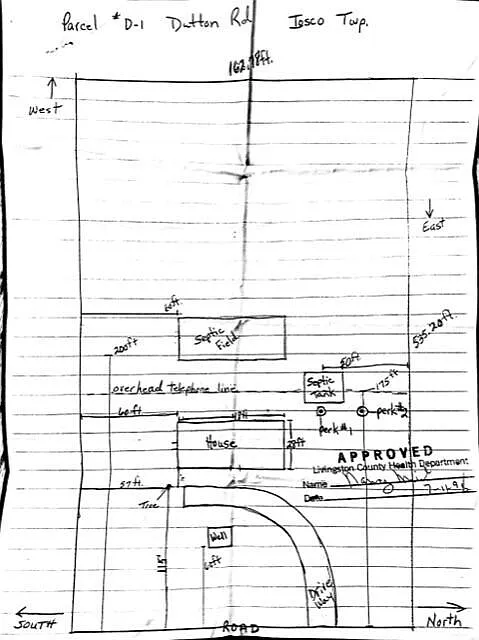 Parcel #D-1 Dutton Rd Iosco Twp.
162.78ft.
West
East
60ft.
Septic Field
535.20ft
200ft
50ft
overhead telephone line
Septic Tank
175ft
60ft
48ft
perk#1
perk#2
House
28ft
APPROVED
Livingston County Health Department
57ft.
Name
Date
Tree
Well
115
60ft
Drive Way
SOUTH
ROAD
North